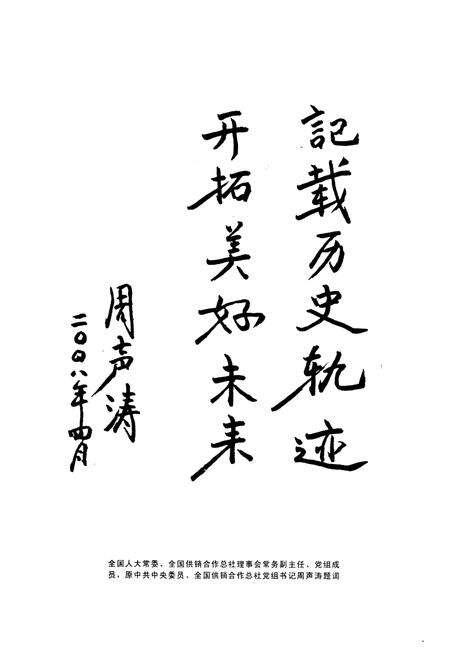 記载历史轨迹
开拓美好未来
周声涛
二〇〇八年四月
全国人大常委、全国供销合作总社理事会常务副主任、党组成
员,原中共中央委员、全国供销合作总社党组书记周声涛题词